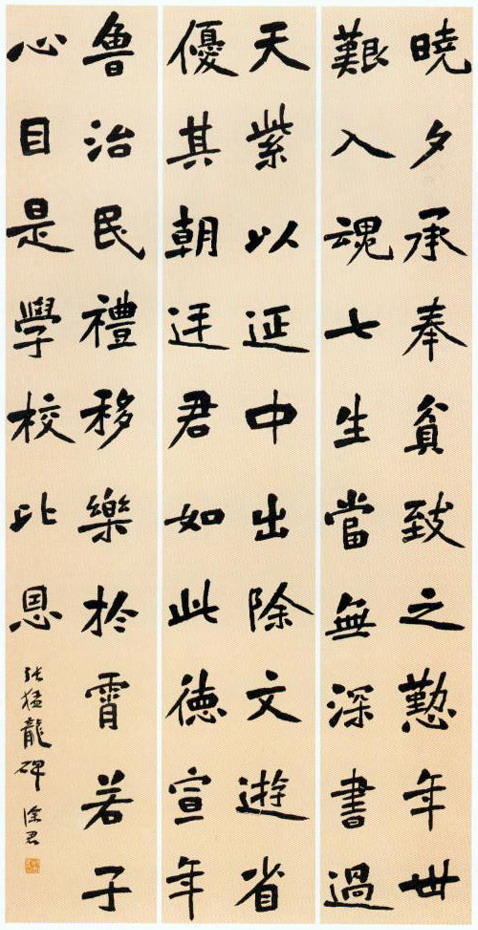 曉夕承奉貧致之懃年卅
艱入魂七生當無深書過
天紫以延中出除文遊省
優其朝迋君如此德宣年
魯治民禮移樂於霄若子
心目是學校比恩
張猛龍碑 徐君